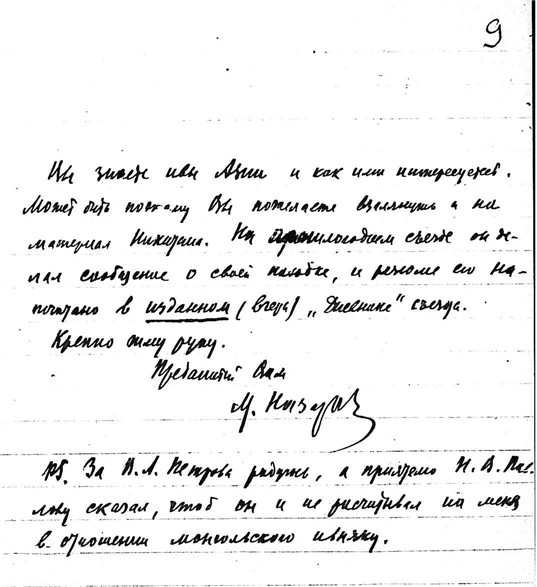 9
Вы знаете ивы Азии и как ими интересуетесь.
Может быть поэтому Вы пожелаете взглянуть и на
материал Никитина. На прошлогоднем съезде он де-
лал сообщение о своей поездке, и резюме его на-
печатано в изданном (вчера) „Дневнике“ съезда.
Крепко жму руку.
Преданный Вам
М. Назаров
PS. За В. А. Петрова радуюсь, а приятелю Н. В. Пав-
лову сказал, чтоб он и не расчитывал на меня
в отношении монгольского ивняку.